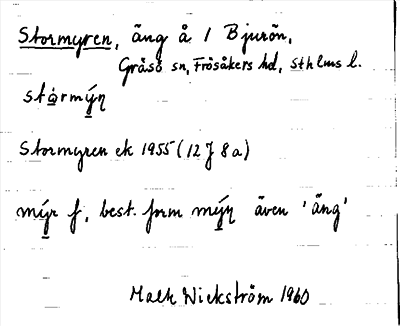 Stormyren, äng å 1 Bjurön,
Gräsö sn, Frösåkers hd, sthlms l.
stårmýn
Stormyren ek 1955 (12 J 8a)
mýr f, best. form mýn även 'äng'
Mats Wickström 1960